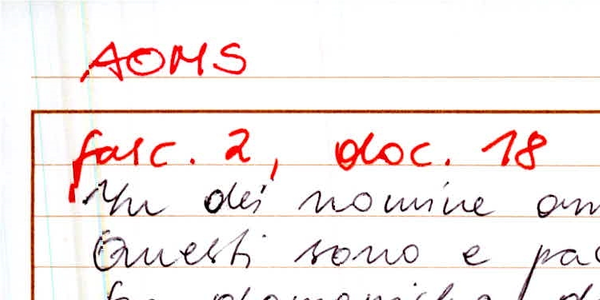 AOMS
fasc. 2, doc. 18
In dei nomine am
Questi sono e pac